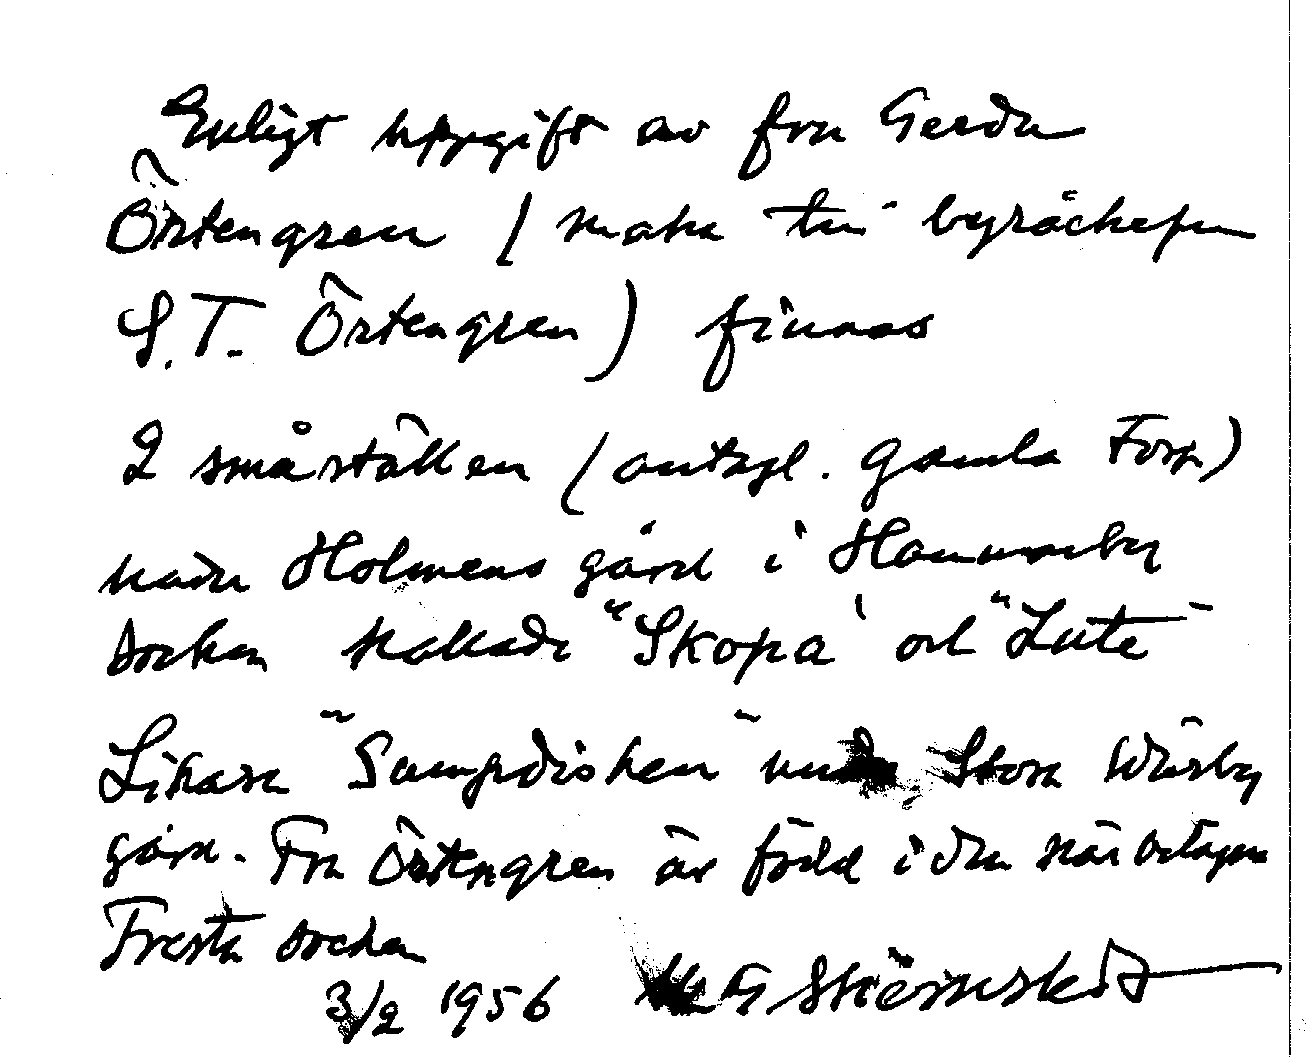 Enligt uppgift av fru Gerda
Örtengren (maka till byråchefen
S.T. Örtengren) finnas
2 småställen (antagl. gamla Torp)
under Holmens gård i Hammarby
socken kallade "Skopa" och "Lute"
Likaså "Sumpdisken" under Stora Wäsby
gård. Fru Örtengren är född i den närbelägna
Fresta socken
3/2 1956 G Stiernstedt